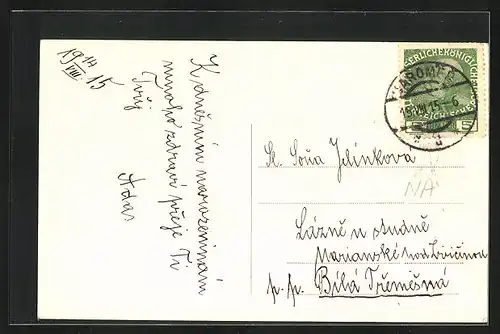 19 14/VIII. 15
K dnešním narozeninám
mnoho zdraví přeje Ti
Tvůj
Adas
KAISERLICHEKÖNIGLICHE
ÖSTERREICHISCHE
5
JAROMĚŘ
15 VIII 15-6
Sl. Soňa Jelínkova
NA
Lázně u studně
Marianské nad
p. p. Bílá Třemešná